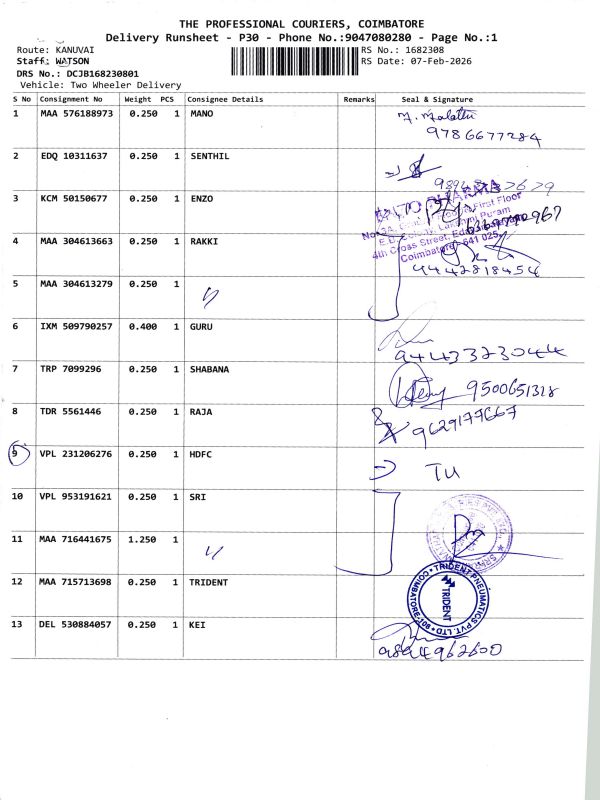 THE PROFESSIONAL COURIERS, COIMBATORE
Delivery Runsheet - P30 - Phone No.:9047080280 - Page No.:1
Route: KANUVAI RS No.: 1682308
Staff: WATSON RS Date: 07-Feb-2026
DRS No.: DCJB168230801
Vehicle: Two Wheeler Delivery
S No Consignment No Weight PCS Consignee Details Remarks Seal & Signature
1 MAA 576188973 0.250 1 MANO M. Malathi
9786677284
2 EDQ 10311637 0.250 1 SENTHIL
3 KCM 50150677 0.250 1 ENZO
First Floor
4th Cross Street,
Coimbatore - 641 025.
4 MAA 304613663 0.250 1 RAKKI
9442818454
5 MAA 304613279 0.250 1 〃
6 IXM 509790257 0.400 1 GURU
9443323044
7 TRP 7099296 0.250 1 SHABANA 9500651318
8 TDR 5561446 0.250 1 RAJA 9629177667
9 VPL 231206276 0.250 1 HDFC TU
10 VPL 953191621 0.250 1 SRI
11 MAA 716441675 1.250 1 〃
12 MAA 715713698 0.250 1 TRIDENT
TRIDENT PNEUMATICS PVT. LTD
TRIDENT
13 DEL 530884057 0.250 1 KEI
9894962600